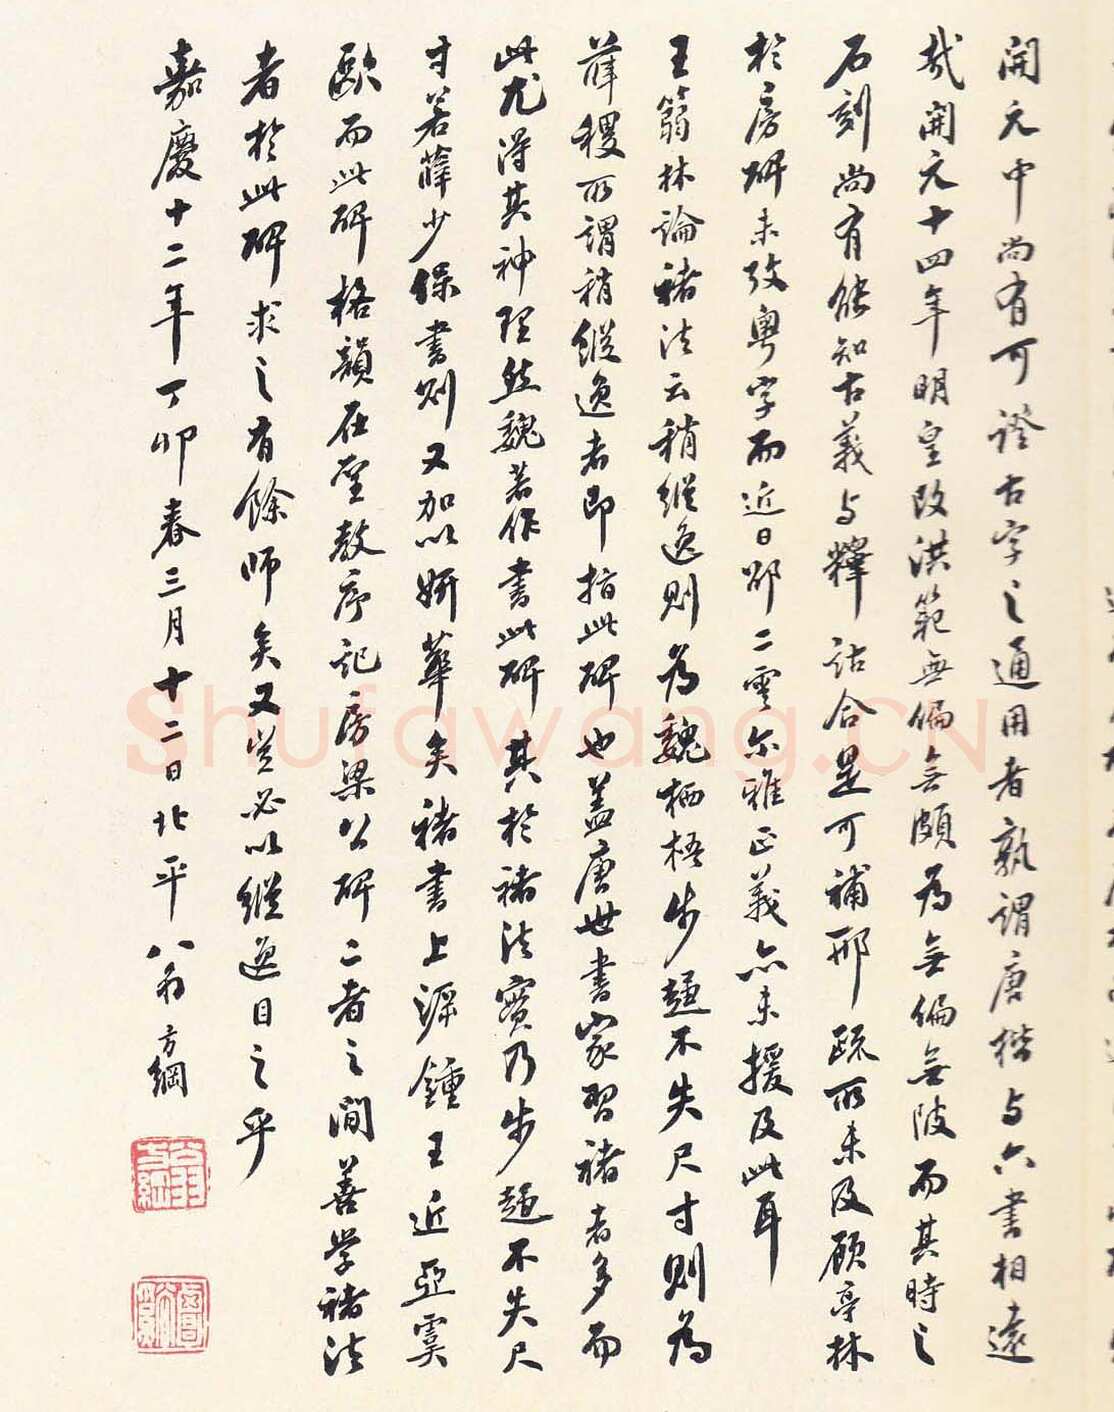 開元中尚有可證古字之通用者孰謂唐楷与六書相遠
哉開元十四年明皇改洪範無偏無頗為無偏無陂而其時之
石刻尚有能知古義与釋詁合是可補邢疏所未及顧亭林
於房碑未攷粤字而近日邵二雲尔雅正義亦未援及此耳
王箬林論褚法云稍縱逸則為魏栖梧步趨不失尺寸則為
薛稷所謂稍縱逸者即指此碑也盖唐世書家習褚者多而
此尤得其神理然魏著作書此碑其於褚法實乃步趨不失尺
寸若薛少保書則又加以妍華矣褚書上源鍾王近亞虞
歐而此碑格韻在聖教序記房梁公碑二者之間善学褚法
者於此碑求之有餘師矣又豈必以縱逸目之乎
嘉慶十二年丁卯春三月十二日北平翁方綱
翁方綱
覃谿
Shufawang.CN